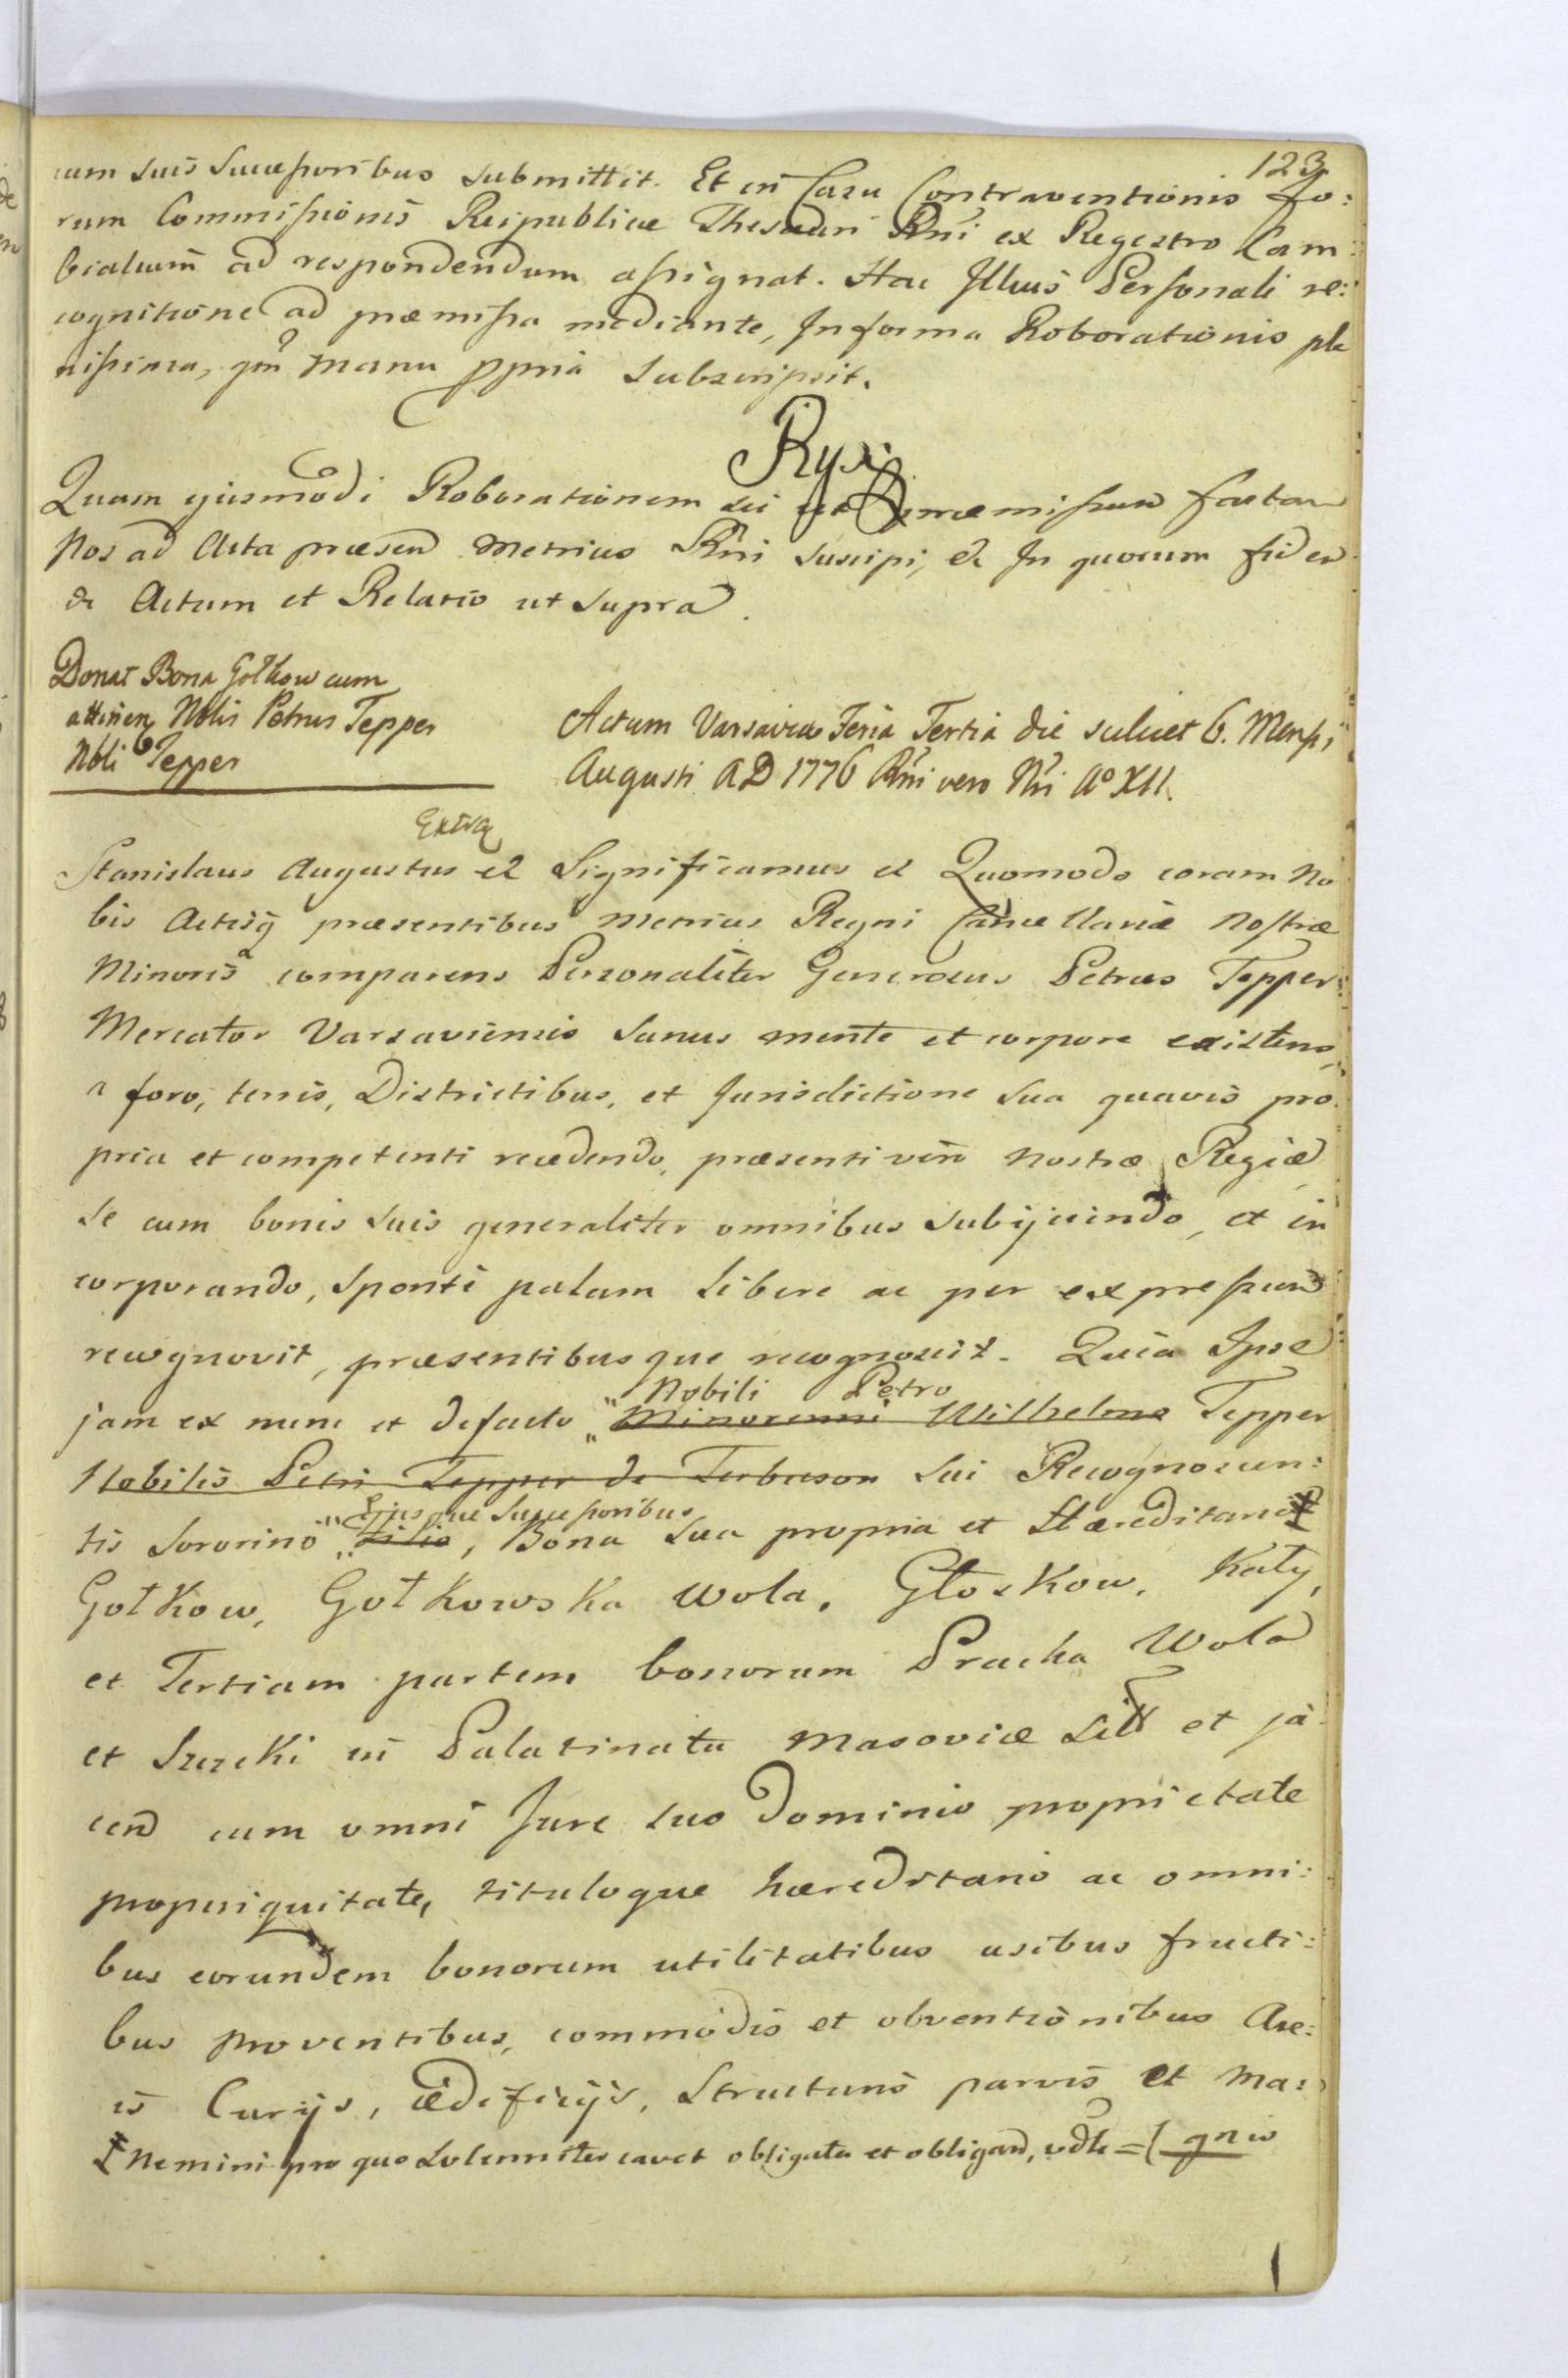 123
cum suis Successoribus submittit. Et in Casu Contraventionis Fo:
rum Commissionis Reipublicae Thesauri Rni ex Regestro Cam:
bialium ad respondendum assignat. Hac Illius Personali re:
cognitione ad praemissa mediante, In forma Roborationis ple
nissima, qm manu ppria subscripsit.
Ryx
Quam ejusmodi Roborationem sic ut praemissum factam
Nos ad Acta praesen Metrices Rni suscipi, & In quorum fidem
& Actum et Relatio ut supra.
Donat Bona Gołkow cum
attinen Nblis Petrus Tepper
Nbli Tepper
Actum Varsaviae Feria Tertia die scilicet 6. Mensis
Augusti AD 1776 Rni vero Nri Ao XII.
Extra
Stanislaus Augustus & Significamus & Quomodo coram No
bis Actisq praesentibus Metrices Regni Cancellariae Nostrae
Minoris comparens Personaliter Generosus Petrus Tepper
Mercator Varsaviensis Sanus mente et corpore existens,
a foro, terris, Districtibus, et Jurisdictione sua quavis pro
pria et competenti recedendo, praesenti vero Nostrae Regiae
se cum bonis suis generaliter omnibus subijciendo, et in
corporando, sponte palam libere ac per expressum
recognovit, praesentibusque recognoscit. Quia Ipse
Nobili Petro
jam ex nunc et defacto Minorenni Wilhelmo Tepper
Nobilis Petri Tepper de Ferbuson sui Recognoscen:
Ejusque Successoribus
tis Sororino filio, Bona sua propria et Haereditaria
Gołkow, Gołkowska Wola, Głoskow, Kąty,
et Tertiam partem bonorum Pracka Wola
et Szczeki in Palatinatu Masoviae sitt et ja
cen cum omni Jure suo Dominio proprietate
propinquitate, tituloque haereditario ac omni:
bus eorundem bonorum utilitatibus usibus fructi:
bus proventibus, commodis et obventionibus Are:
is Curijs, aedificijs, Structuris parvis et ma:
Nemini pro quo solenniter cavet obligata et obligan, gnis